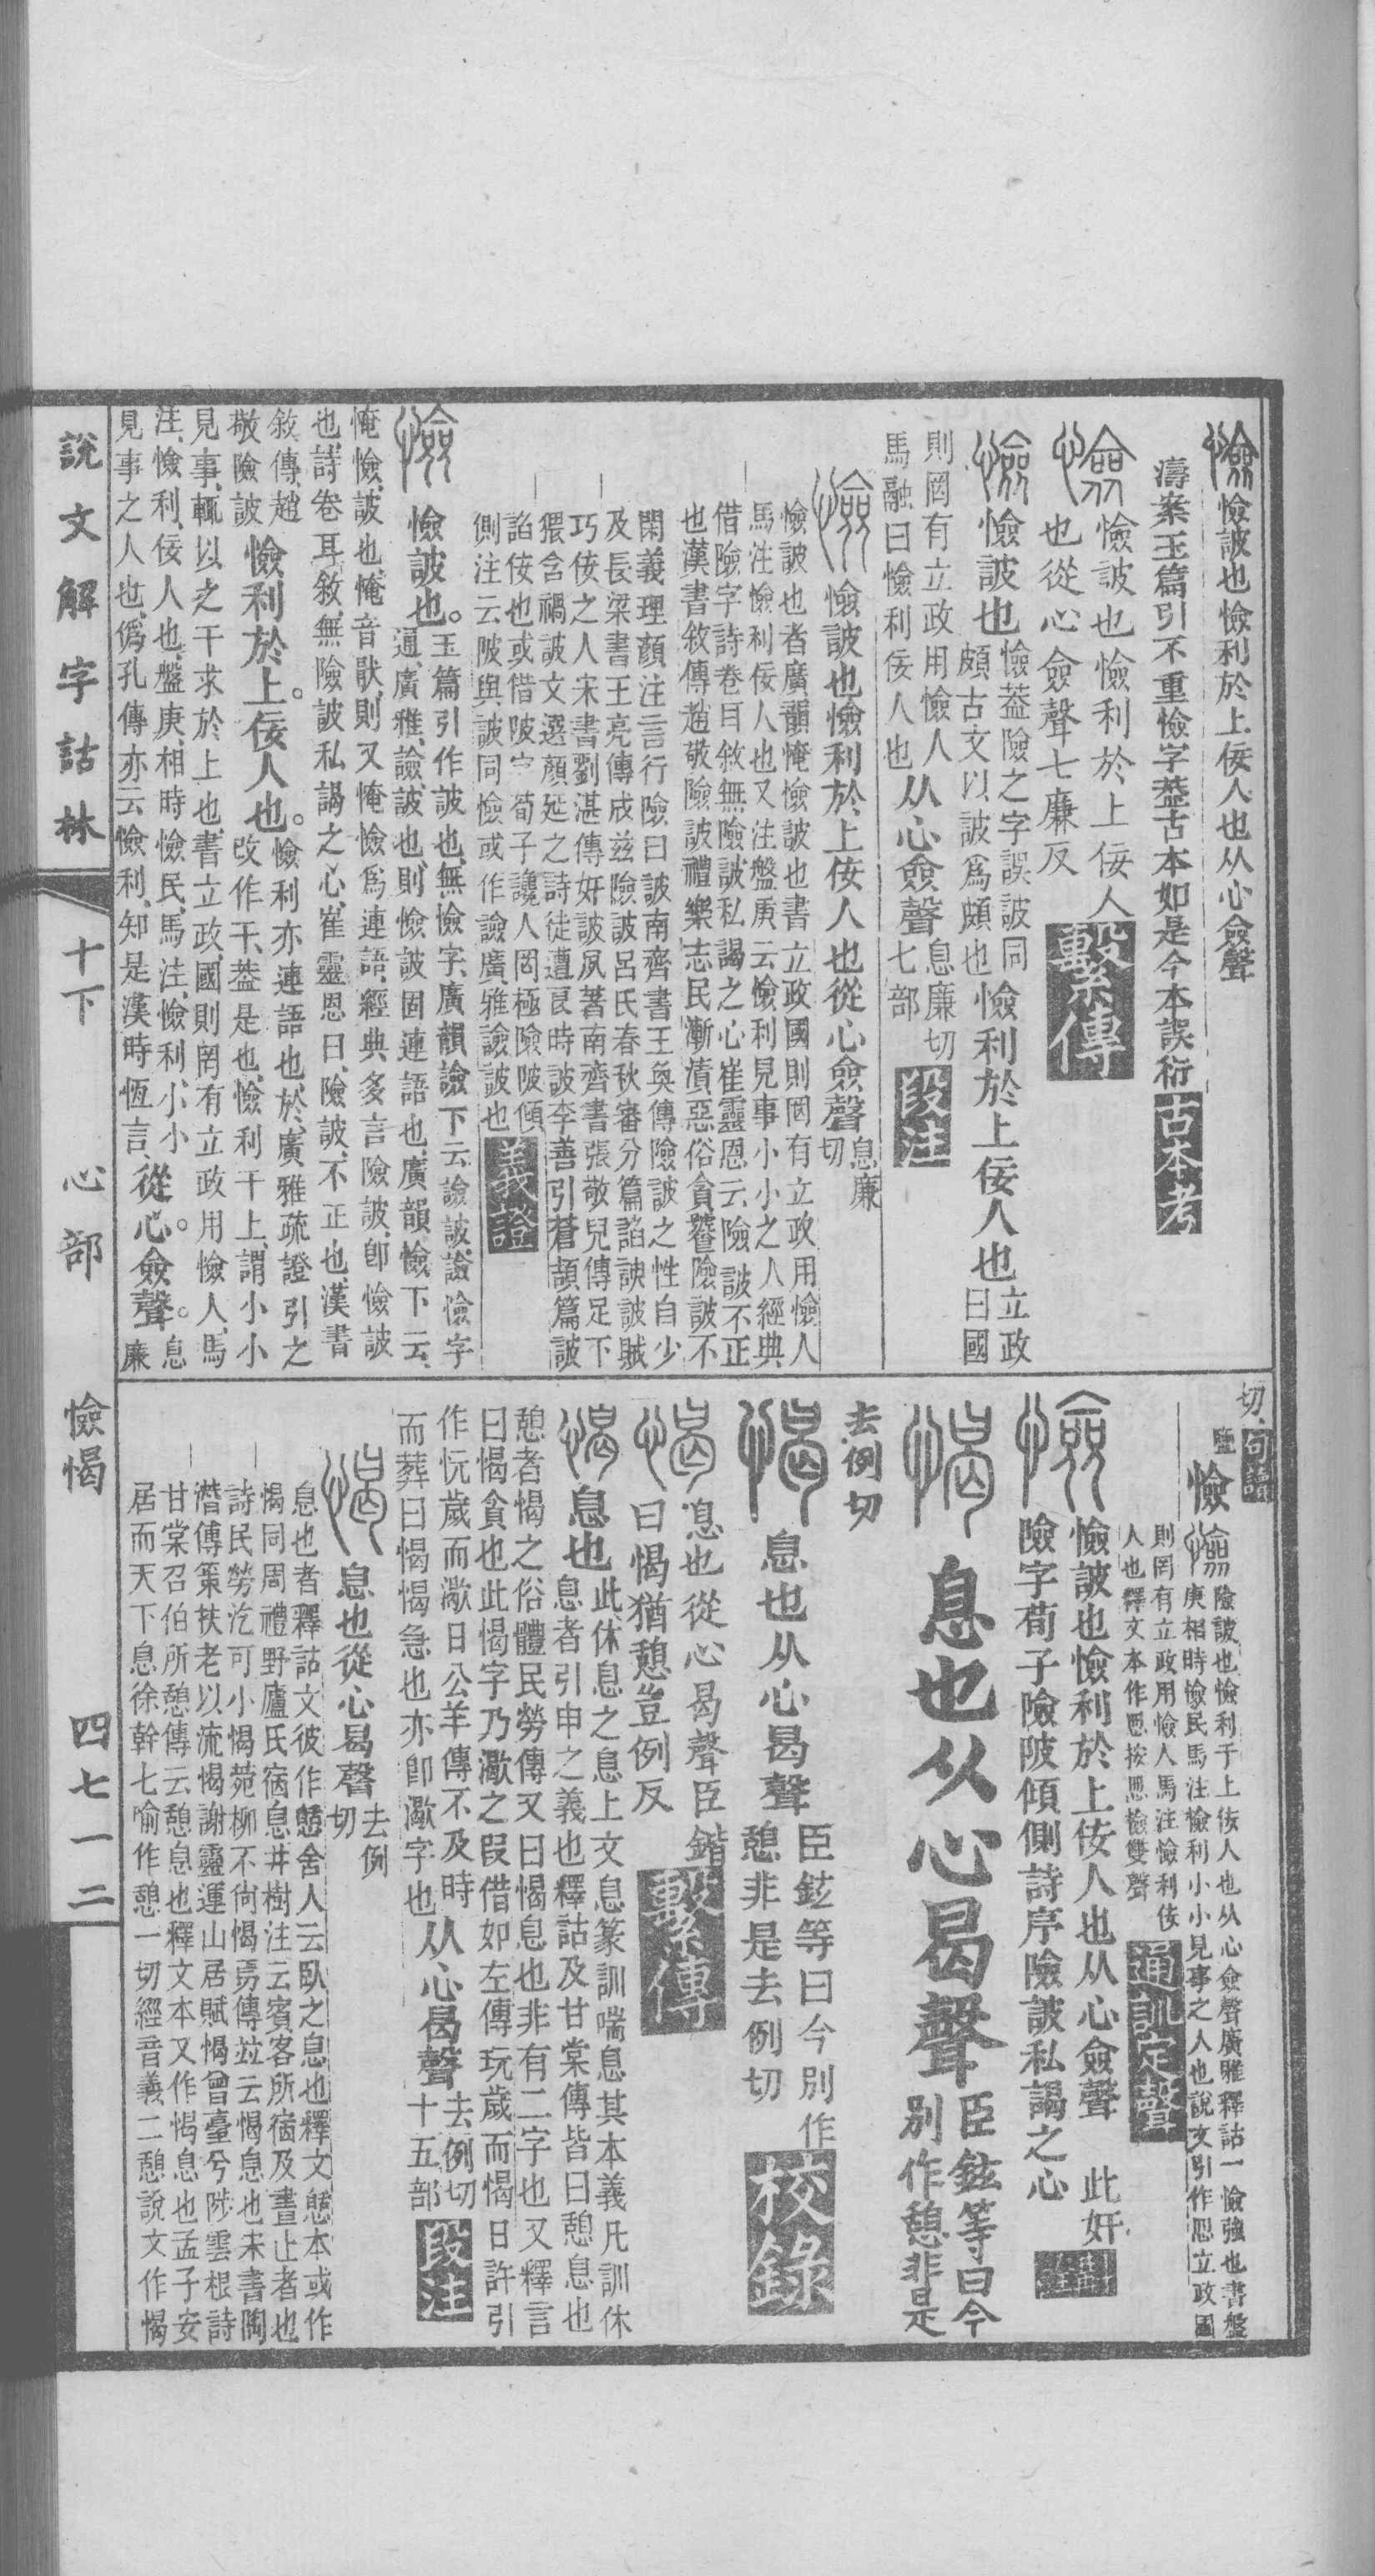 憸詖也憸利於上佞人也从心僉聲
濤案玉篇引不重憸字葢古本如是今本誤衍 古本考
憸詖也憸利於上佞人
也從心僉聲七廉反 繫傳
憸詖也
憸葢險之字誤詖同
頗古文以詖爲頗也
憸利於上佞人也
立政曰國
則罔有立政用憸人
馬融曰憸利佞人也
从心僉聲
息廉切
七部
段注
憸詖也憸利於上佞人也從心僉聲
息廉
切
憸詖也者廣韻㤿憸詖也書立政國則罔有立政用憸人
馬注憸利佞人也又注盤庚云憸利見事小小之人經典
借險字詩卷耳敘無險詖私謁之心崔靈恩云險詖不正
也漢書敘傳趙敬險詖禮樂志民漸漬惡俗貪饕險詖不
閑義理顏注言行險曰詖南齊書王奐傳險詖之性自少
及長梁書王亮傳成茲險詖呂氏春秋審分篇諂諛詖賊
巧佞之人宋書劉湛傳奸詖夙著南齊書張敬兒傳足下
猥含禍詖文選顏延之詩徒遭良時詖李善引蒼頡篇詖
諂佞也或借陂字荀子讒人罔極險陂傾
側注云陂與詖同憸或作譣廣雅譣詖也
義證
憸詖也。
玉篇引作詖也、無憸字、廣韻譣下云、譣詖、譣憸字
通、廣雅、譣、詖也、則憸詖固連語也、廣韻、憸下云、
㤿憸、詖也、㤿音㱃、則又㤿憸爲連語、經典多言險詖、卽憸詖
也、詩卷耳敘、無險詖私謁之心、崔靈恩曰、險詖、不正也、漢書
敘傳、趙
敬險詖
憸利於上。佞人也。
憸利亦連語也、於、廣雅疏證引之
改作干、葢是也、憸利干上、謂小小
見事、輒以之干求於上也、書立政、國則罔有立政用憸人、馬
注、憸利、佞人也、盤庚相時憸民、馬注、憸利、小小
見事之人也、僞孔傳亦云憸利、知是漢時恆言、
從心。僉聲。
息
廉
說文解字詁林 十下 心部 憸愒 四七一二
切、 句讀
憸
險詖也憸利于上佞人也从心僉聲廣雅釋詁一憸強也書盤
庚相時憸民馬注憸利小小見事之人也說文引作思立政國
則罔有立政用憸人馬注憸利佞
人也釋文本作思按思憸雙聲
通訓定聲
憸詖也憸利於上佞人也从心僉聲 此奸
險字荀子險陂傾側詩序險詖私謁之心
息也从心曷聲
臣鉉等曰今
別作憩非是
去例切
息也从心曷聲
臣鉉等曰今別作
憩非是去例切
校錄
息也從心曷聲臣鍇
曰愒猶憩豈例反
繫傳
息也
此休息之息上文息篆訓喘息其本義凡訓休
息者引申之義也釋詁及甘棠傳皆曰憩息也
憩者愒之俗體民勞傳又曰愒息也非有二字也又釋言
曰愒貪也此愒字乃㵣之叚借如左傳玩歲而愒日許引
作忨歲而㵣日公羊傳不及時
而葬曰愒愒急也亦卽㵣字也
从心曷聲
去例切
十五部
段注
息也從心曷聲
去例
切
息也者釋詁文彼作憩舍人云臥之息也釋文憩本或作
愒同周禮野廬氏宿息井樹注云賓客所宿及晝止者也
詩民勞汔可小愒菀柳不尙愒焉傳竝云愒息也宋書陶
潛傳策扶老以流愒謝靈運山居賦愒曾臺兮陟雲根詩
甘棠召伯所憩傳云憩息也釋文本又作愒息也孟子安
居而天下息徐幹七喻作憩一切經音義二憩說文作愒